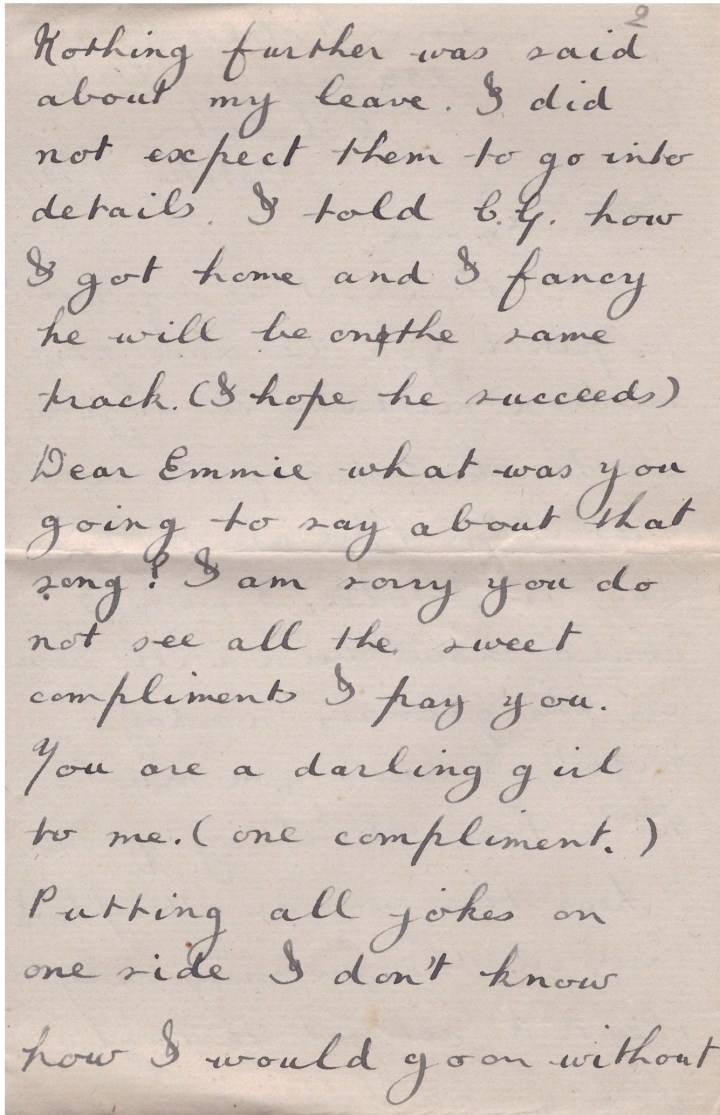 2
Nothing further was said
about my leave. I did
not expect them to go into
details. I told C.G. how
I got home and I fancy
he will be on the same
track. (I hope he succeeds)
Dear Emmie what was you
going to say about that
song? I am sorry you do
not see all the sweet
compliments I pay you.
You are a darling girl
to me. (one compliment.)
Putting all jokes on
one side I don't know
how I would go on without